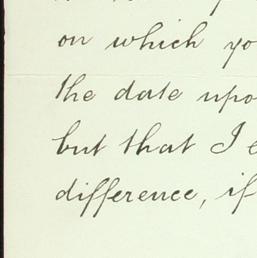 on which yo
the date upo
but that I e
difference, if